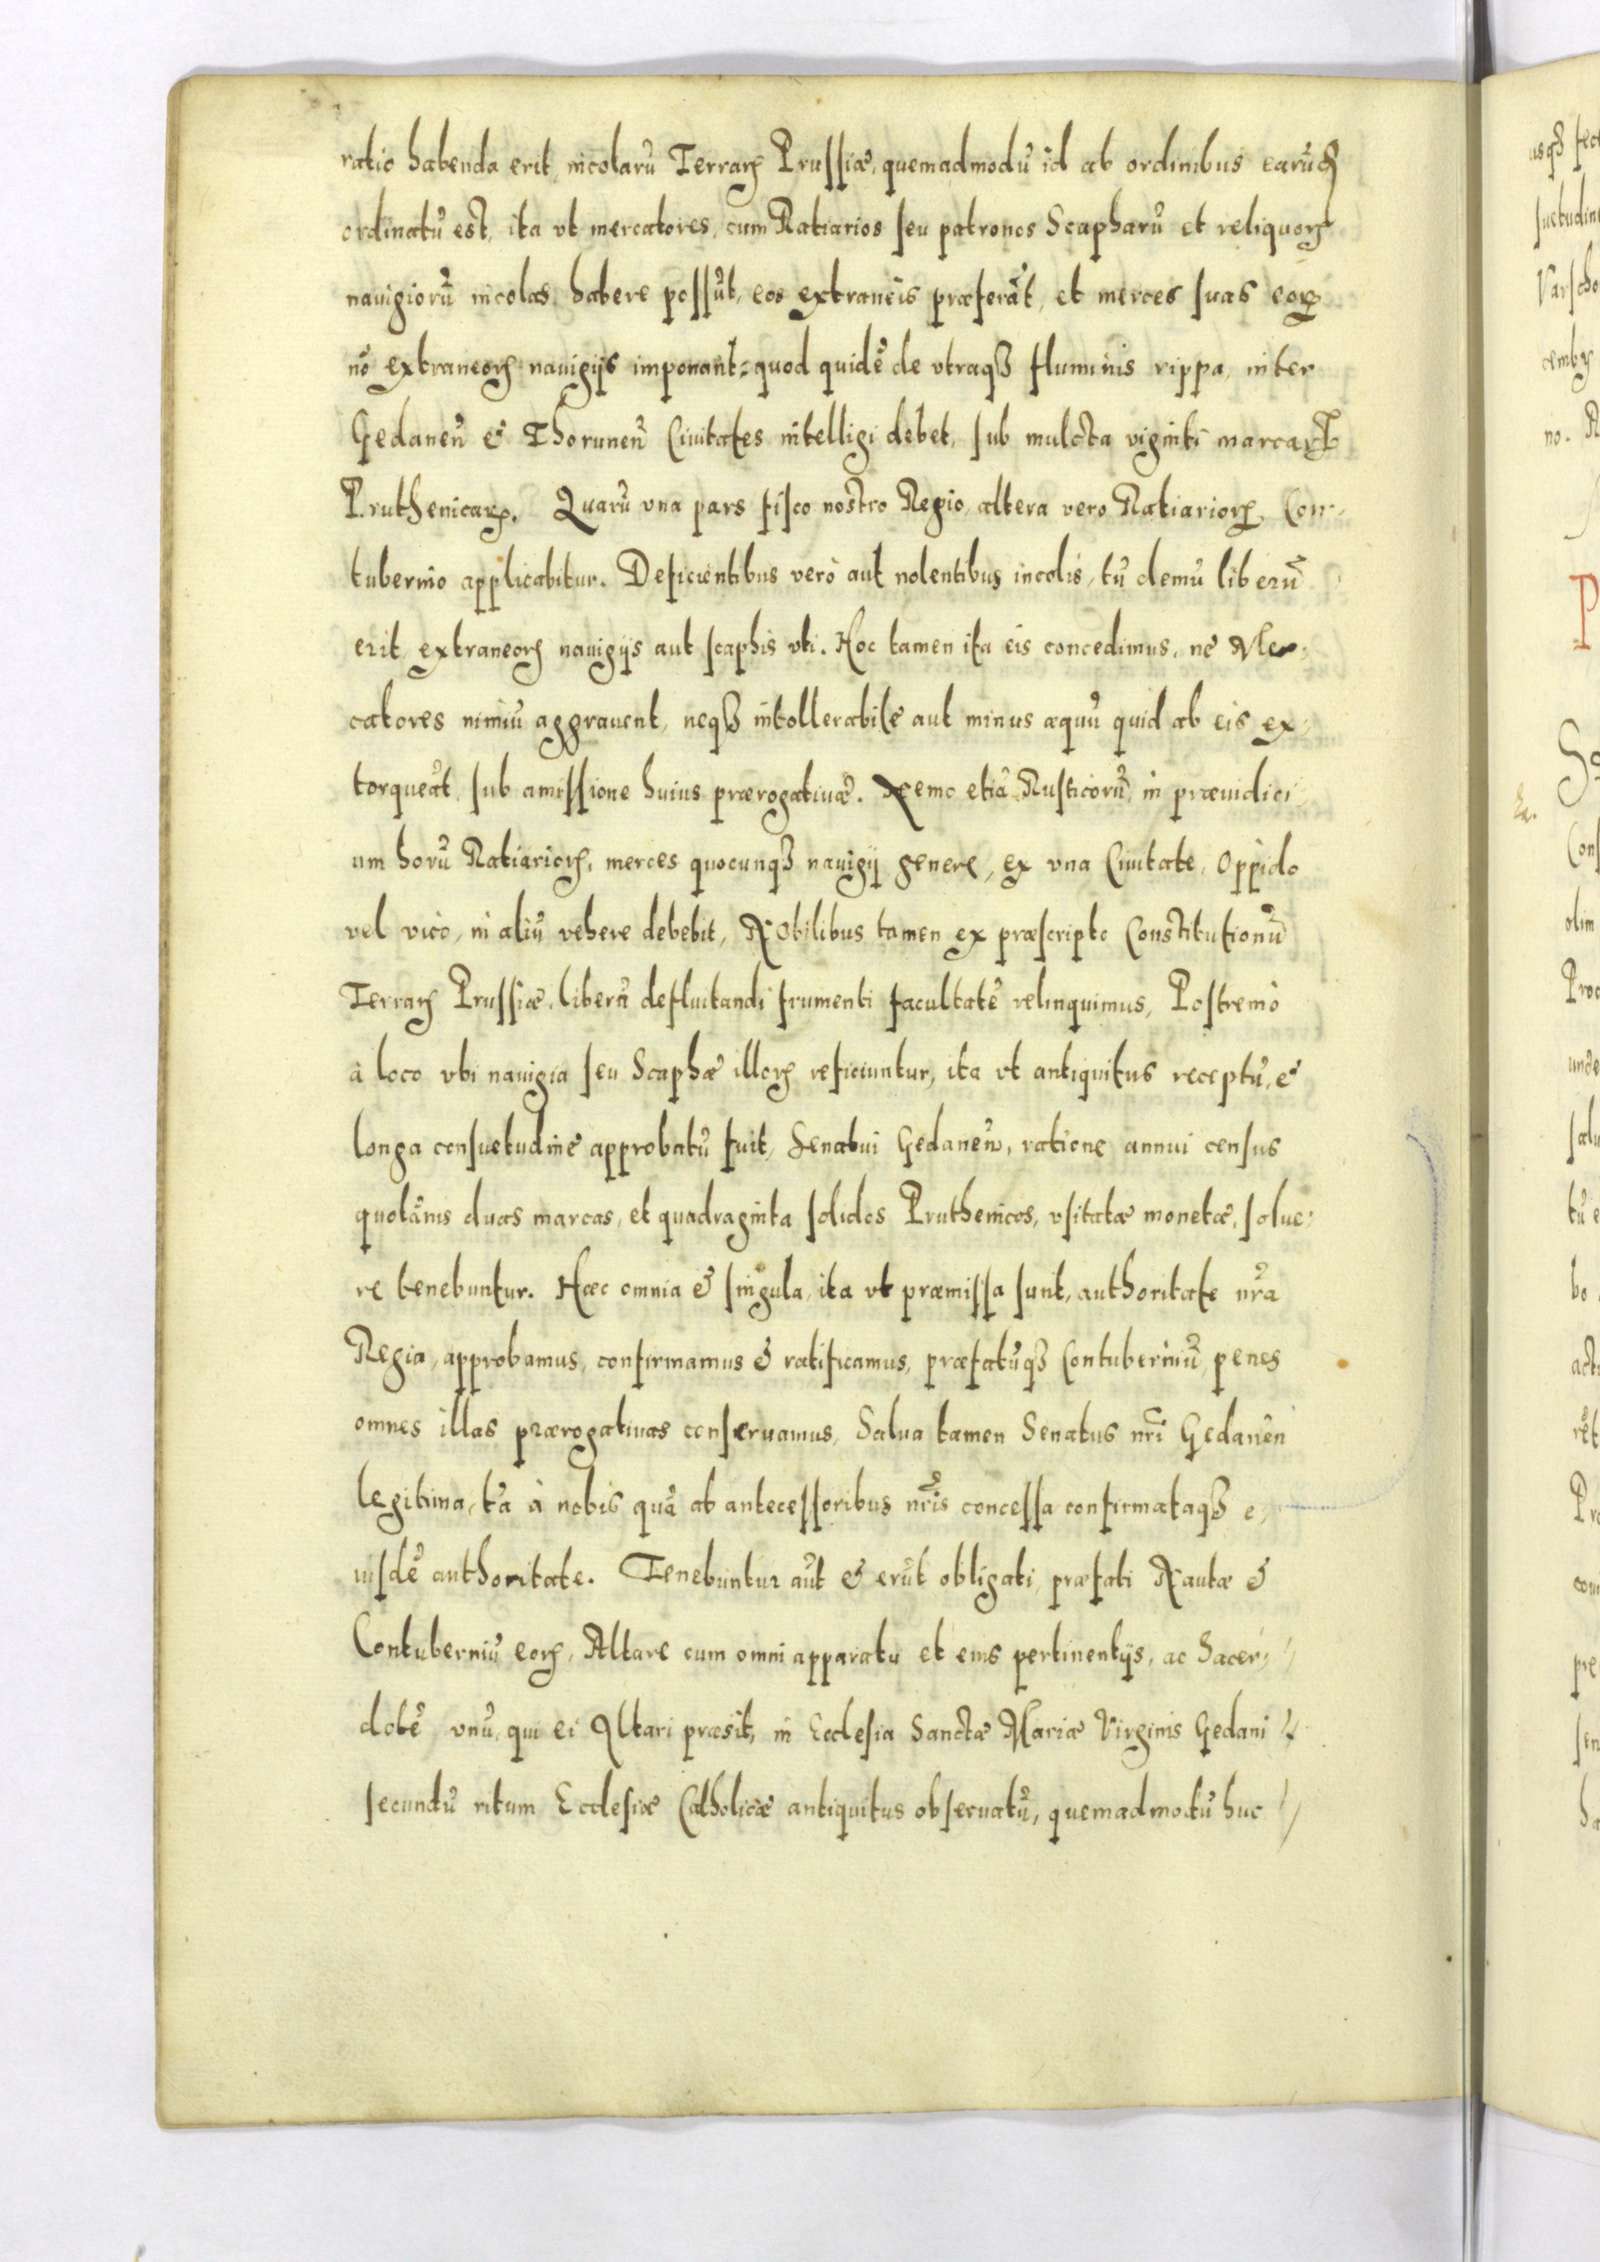 ratio habenda erit, incolarū Terrarꝝ Prussiæ, quemadmodū id ab ordinibus earūdꝫ
ordinatū est, ita vt mercatores, cum Ratiarios seu patronos Scapharū et reliquorꝝ
nauigiorū incolas habere possūt, eos extraneis præferāt, et merces suas eorꝝ
nō extraneorꝝ nauigijs imponant: quod quidē de vtraqꝫ fluminis rippa, inter
Gedaneñ & Thoruneñ Ciuitates intelligi debet, sub mulcta viginti marcarꝝ
Pruthenicarꝝ. Quarū vna pars fisco nostro Regio, altera vero Ratiariorꝝ Con-
tubernio applicabitur. Deficientibus verò aut nolentibus incolis, tū demū liberū
erit extraneorꝝ nauigijs aut scaphis vti. Hoc tamen ita eis concedimus, ne Mer-
catores nimiū aggrauent, neqꝫ intollerabile aut minus æquū quid ab eis ex-
torqueāt sub amissione huius prærogatiuæ. Nemo etiā Rusticorū in præiudici-
um horū Ratiariorꝝ, merces quocunqꝫ nauigij genere, ex vna Ciuitate, Oppido
vel vico, in aliū vehere debebit, Nobilibus tamen ex præscripto Constitutionū
Terrarꝝ Prussiæ, liberā defluitandi frumenti facultatē relinquimus, Postremò
à loco vbi nauigia seu Scaphæ illorꝝ reficiuntur, ita vt antiquitus receptū, &
longa consuetudine approbatū fuit, Senatui Gedaneñ, ratione annui census
quotānis duas marcas, et quadraginta solidos Pruthenicos, vsitatæ monetæ, solue-
re tenebuntur. Hæc omnia & singula, ita vt præmissa sunt, authoritate nr̄a
Regia, approbamus, confirmamus & ratificamus, præfatūqꝫ Contuberniū, penes
omnes illas prærogatiuas conseruamus, Salua tamen Senatus nr̄i Gedaneñ
legitima, tā à nobis quā ab antecessoribus nr̄is concessa confirmataqꝫ e-
iusdē authoritate. Tenebuntur aūt & erūt obligati præfati Nautæ &
Contuberniū eorꝝ, Altare cum omni apparatu et eius pertinentijs, ac Sacer-
dotē vnū, qui ei Altari præsit, in Ecclesia Sanctæ Mariæ Virginis Gedani
secundū ritum Ecclesiæ Catholicæ antiquitus obseruatū, quemadmodū huc